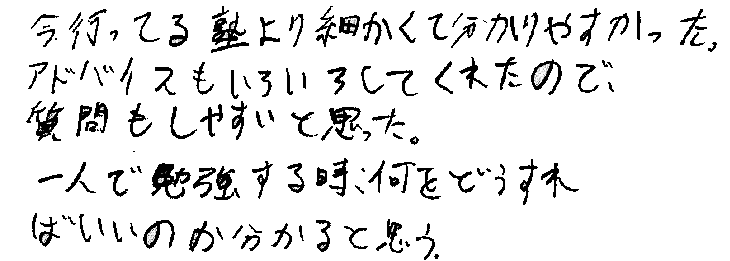 今行ってる塾より細かくて分かりやすかった。
アドバイスもいろいろしてくれたので、
質問もしやすいと思った。
一人で勉強する時、何をどうすれ
ばいいのか分かると思う。